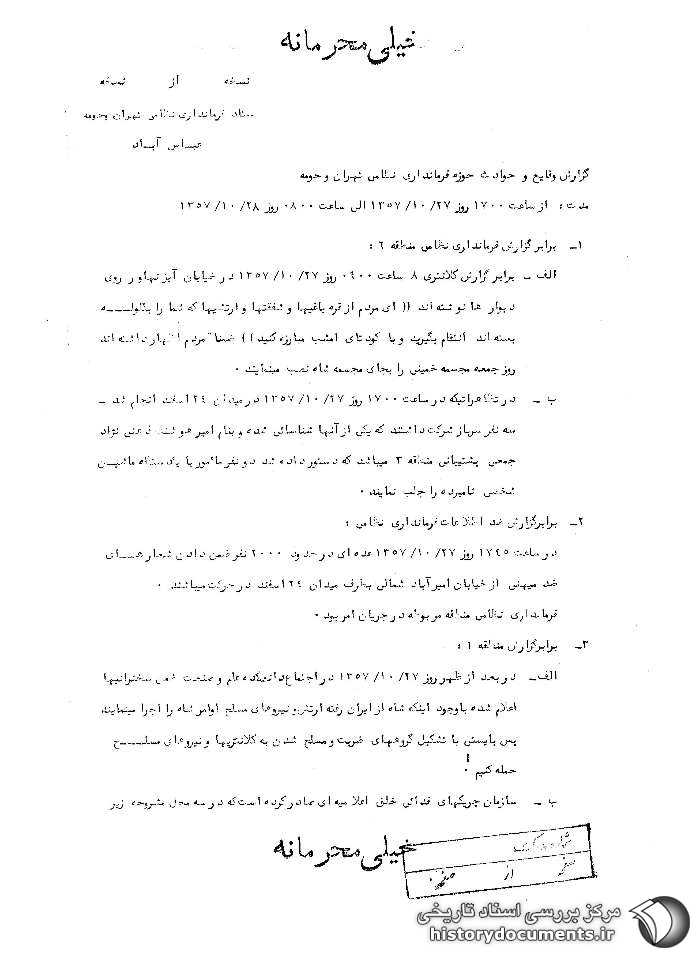 خیلی محرمانه
نسخه از نسخه
ستاد فرمانداری نظامی تهران وحومه
عباس آباد
گزارش وقایع و حوادث حوزه فرمانداری نظامی تهران وحومه
مدت : از ساعت ۱۷۰۰ روز ۲۷/ ۱۰/ ۱۳۵۷ الی ساعت ۰۸۰۰ روز ۲۸/ ۱۰/ ۱۳۵۷
۱ـ برابر گزارش فرمانداری نظامی منطقه ۶ :
الف ـ برابر گزارش کلانتری ۸ ساعت ۰۴۰۰ روز ۲۷/ ۱۰/ ۱۳۵۷ در خیابان آیزنهاور روی
دیوار ها نوشته اند (( ای مردم از قره باغیها و شفقتها و ارتشیها که شما را بگلولـــه
بسته اند انتقام بگیرید و با کودتای امشب مبارزه کنید )) ضمنا" مردم اظهار داشته اند
روز جمعه مجسمه خمینی را بجای مجسمه شاه نصب مینمایند ۰
ب ـ در تظاهراتیکه در ساعت ۱۷۰۰ روز ۲۷/ ۱۰/ ۱۳۵۷ در میدان ۲۴ اسفند انجام شد ـ
سه نفر سرباز شرکت داشتند که یکی از آنها شناسائی شده و بنام امیر هوشنگ نژاد
جمعی پشتیبانی منطقه ۳ میباشد که دستور داده شد دو نفر مامور با یکدستگاه ماشیـن
شخصی نامبرده را جلب نمایند ۰
۲ـ برابرگزارش ضد اطلاعات فرمانداری نظامی :
در ساعت ۱۷۴۵ روز ۲۷/ ۱۰/ ۱۳۵۷ عده ای در حدود ۲۰۰۰ نفر ضمن دادن شعار هــای
ضد میهنی از خیابان امیرآباد شمالی بطرف میدان ۲۴ اسفند در حرکت میباشند ۰
فرمانداری نظامی منطقه مربوطه در جریان امر بود ۰
۳ـ برابرگزارش منطقه ۱ :
الف ـ در بعد از ظهر روز ۲۷/ ۱۰/ ۱۳۵۷ در اجتماع دانشکده علم و صنعت ضمن سخنرانیها
اعلام شده باوجود اینکه شاه از ایران رفته ارتش و نیروهای مسلح اوامر شاه را اجرا مینمایند
پس بایستی با تشکیل گروههای ضربت و مسلح شدن به کلانتریها و نیروهای مسلـــح
حمله کنیم ۰
ب ـ سازمان چریکهای فدائی خلق اعلامیه ای صادر کرده است که در سه محل مشروحه زیر
خیلی محرمانه
صفحه از صفحه
مرکز بررسی اسناد تاریخی
historydocuments.ir